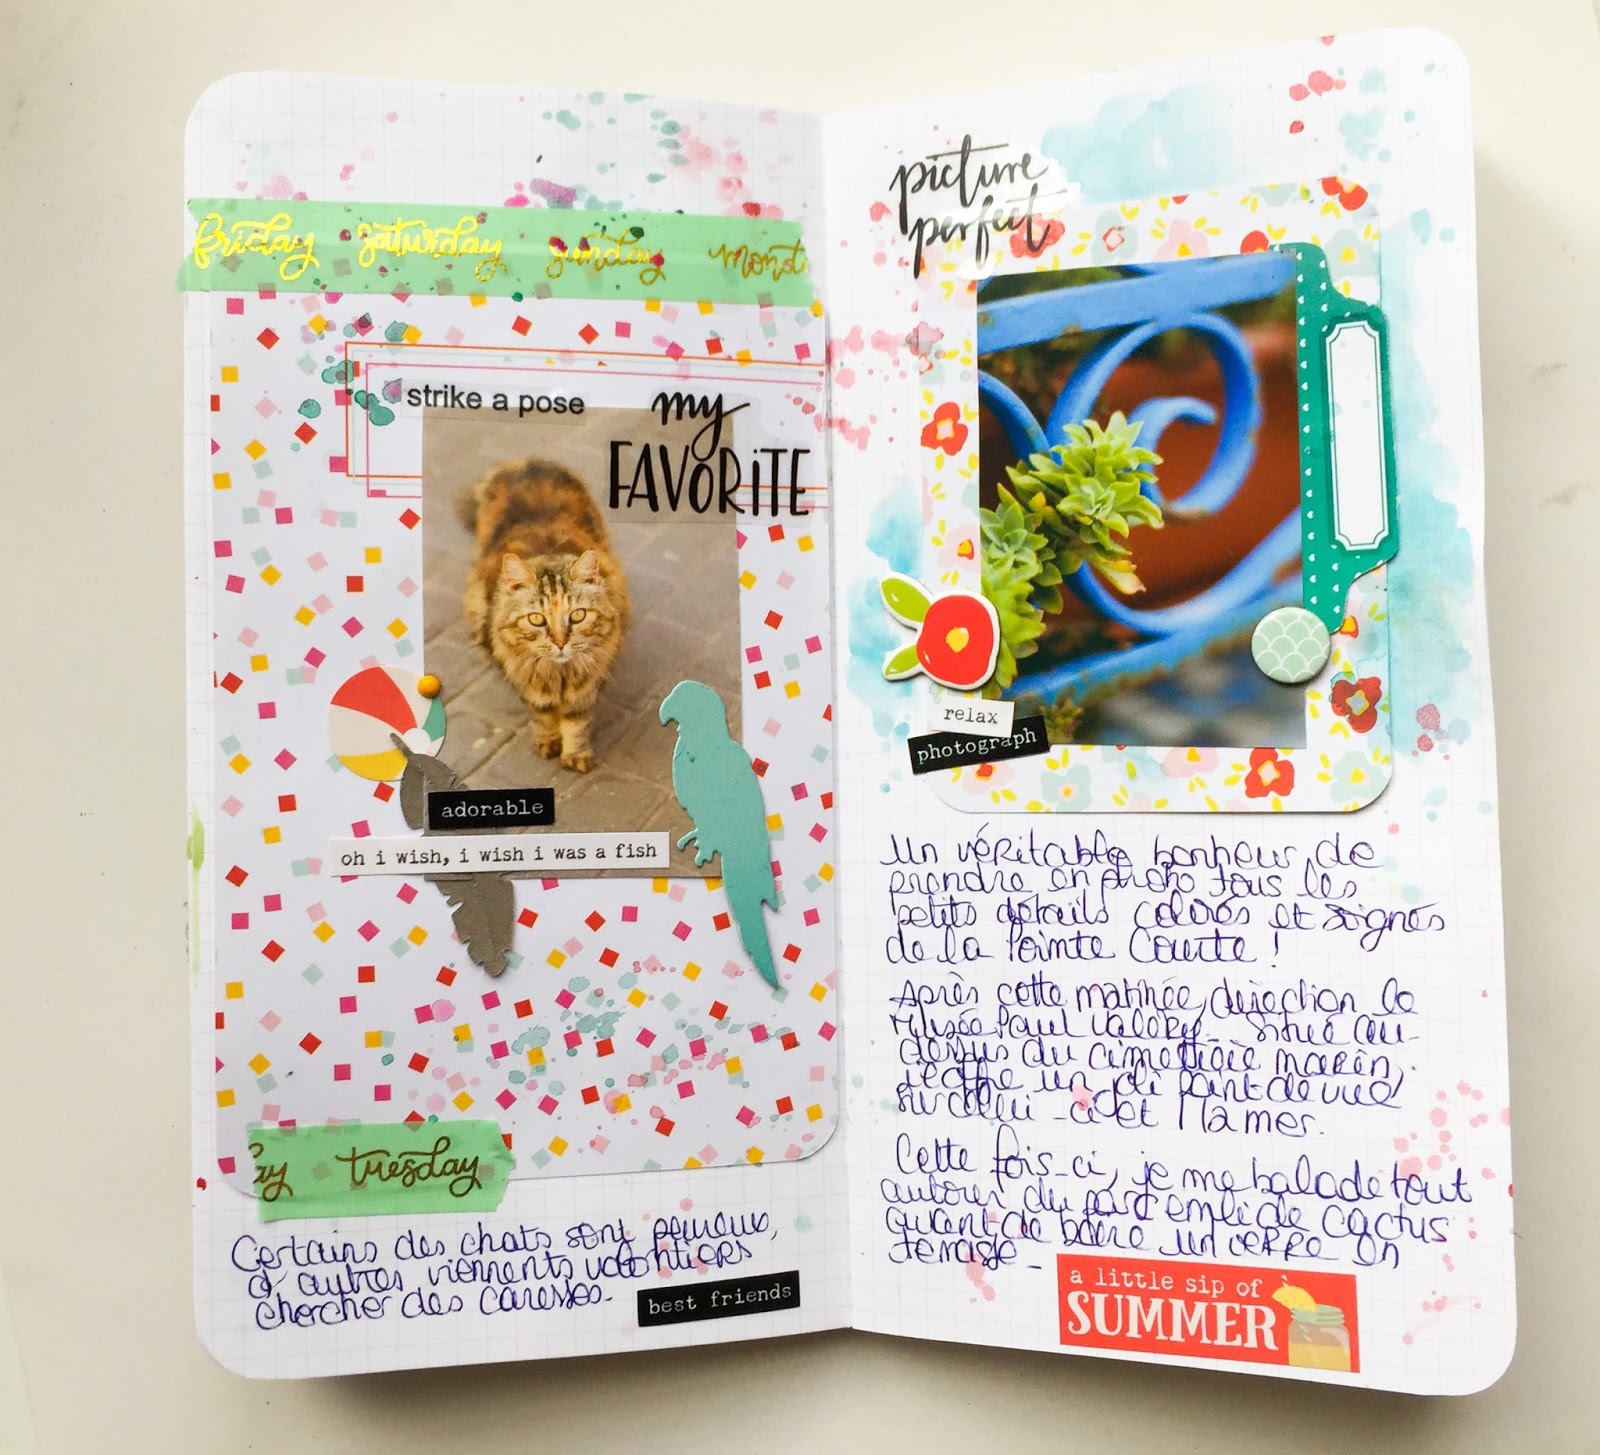 friday saturday sunday mond
strike a pose
my
FAVORITE
adorable
oh i wish, i wish i was a fish
ay tuesday
Certains des chats sont peureux,
d'autres viennent volontiers
chercher des caresses.
best friends
picture
perfect
relax
photograph
Un véritable bonheur de
prendre en photo tous les
petits détails colorés et soignés
de la Pointe Courte !
Après cette matinée, direction le
Musée Paul Valéry. Situé au-
dessus du cimetière marin,
il offre un joli point de vue
sur celui-ci et la mer.
Cette fois-ci, je me balade tout
autour du parc empli de cactus
avant de boire un verre en
terrasse.
a little sip of
SUMMER